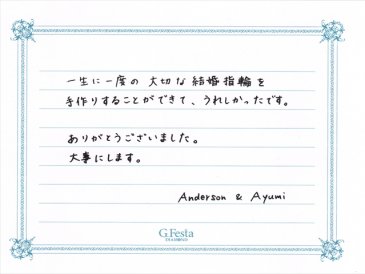 一生に一度の 大切な 結婚指輪を
手作りすることができて、うれしかったです。
ありがとうございました。
大事にします。
Anderson & Ayumi
G.Festa
DIAMOND